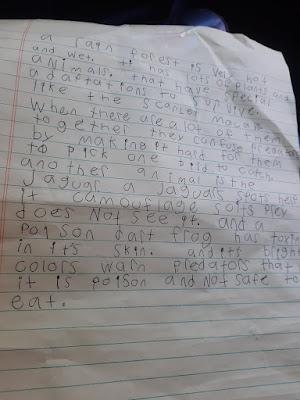 a rain forest is very hot
and wet. it has lots of plants and
animals. that have special
adaptations to survive.
like the scarlet macaw.
When there are a lot of them
together they confuse predators
by making it hard for them
to pick one bird to catch.
another animal is the
Jaguar a Jaguars spots help
it camouflage so its prey
does Not see it. and a
Poison dart frog has toxins
in its skin. and its bright
colors warn predators that
it is poison and Not safe to
eat.